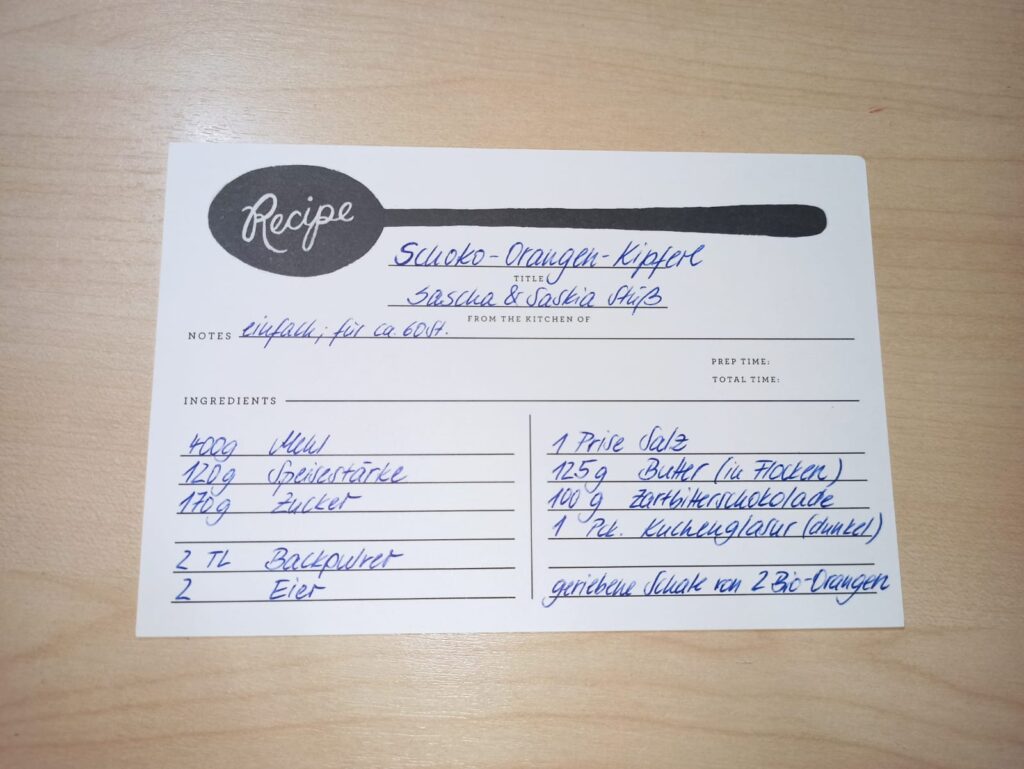 Recipe
Schoko-Orangen-Kipferl
TITLE
Sascha & Saskia Stüß
FROM THE KITCHEN OF
NOTES einfach; für ca. 60 St.
PREP TIME:
TOTAL TIME:
INGREDIENTS
400g Mehl
120g Speisestärke
170g Zucker
2 TL Backpulver
2 Eier
1 Prise Salz
125g Butter (in Flocken)
100g Zartbitterschokolade
1 Pck. Kuchenglasur (dunkel)
geriebene Schale von 2 Bio-Orangen